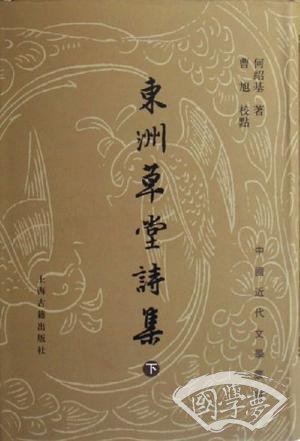 何紹基 著
曹旭 校點
東洲草堂詩集
下
中國近代文學
上海古籍出版社
國學夢